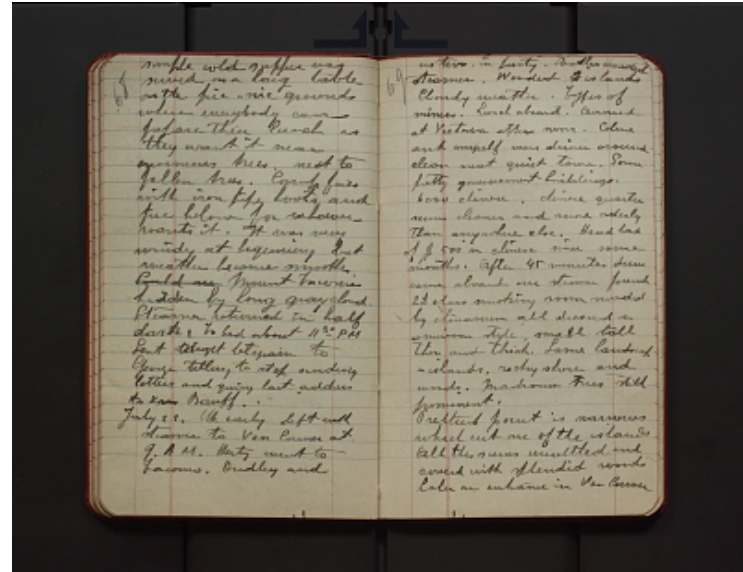 68
simple cold supper was
served on a long table
on the pic-nic grounds
where everybody can
before their lunch as
they want it near
enormous trees, next to
fallen trees. Camp fires
with iron pipe, hooks, and
fire below for whoever
wants it. It was very
windy at beginning but
weather became smooth.
Could see Mount
hidden by long gray cloud
Steamer returned in half
dark. To bed about 11 30 P.M
Sent telegram to
George telling to stop sending
letters and giving last address
Banff.
July 22. Up early left with
steamer to Van Couver at
9 A M. went to
Tacoma. Dudley and
69
us two in party.
steamer. Wooded islands
Cloudy weather. Types of
miners. Lunch aboard. Arrived
at Victoria after noon. Celine
and myself were driven around
clean neat quiet town. Some
pretty government buildings.
6000 chinese, chinese quarter
seems cleaner and more orderly
than anywhere else. Head tax
of $ 500 on chinese since some
months. After 45 minutes drive
came aboard our steamer found
2d class smoking room
by chinamen all dressed in
american style, small tall
thin and thick. Same landscape
- islands, rocky shore and
woods. Madrona trees still
prominent.
Prettiest point is narrows
which cut one of the islands
All this seems unsettled and
covered with splendid woods
Later on entrance in Van Couver